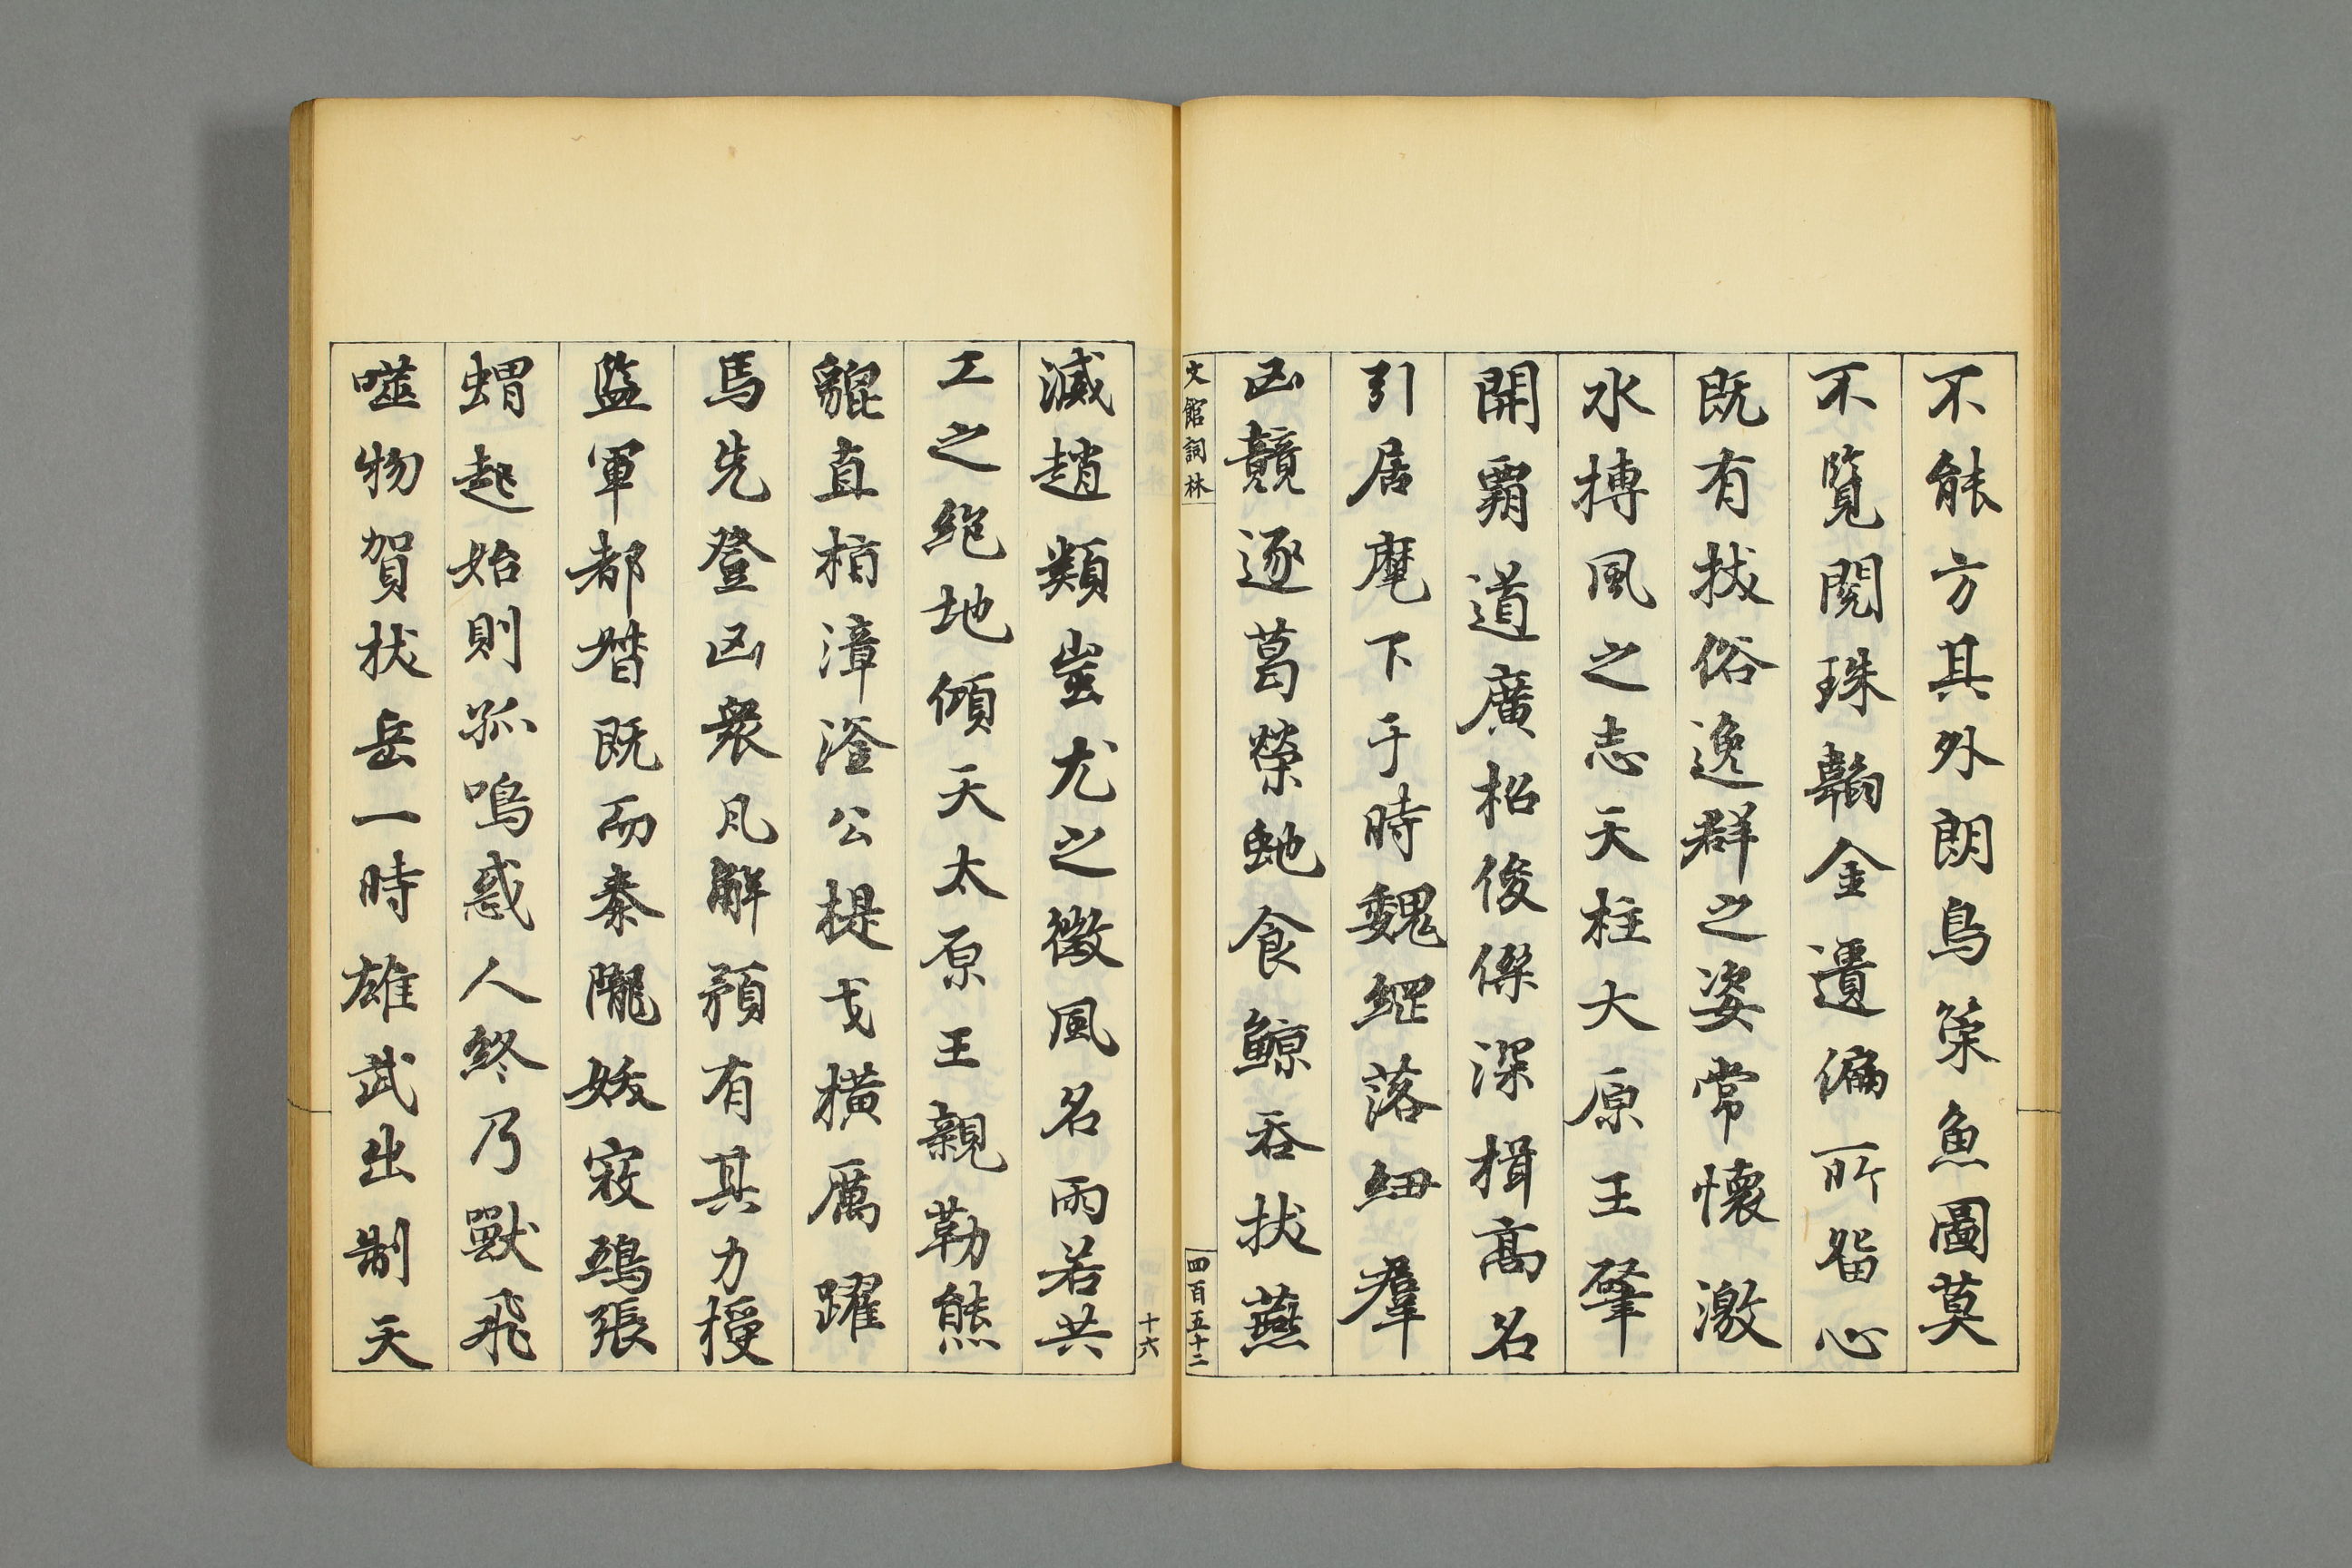 不能方其外朗鳥策魚圖莫
不覽閱珠韜金遺偏所留心
既有拔俗逸群之姿常懷激
水摶風之志天柱大原王肇
開霸道廣招俊傑深揖高名
引居麾下于時魏綱落紐羣
凶競逐葛榮虵食鯨吞拔燕
文館詞林
四百五十二
十六
滅趙類蚩尤之徵風名雨若共
工之絕地傾天太原王親勒熊
貔直掃漳滏公提戈橫厲躍
馬先登凶衆凡解預有其力授
監軍都督既而秦隴妖寇鴟張
蝟起始則孤鳴惑人終乃獸飛
噬物賀拔岳一時雄武出制天